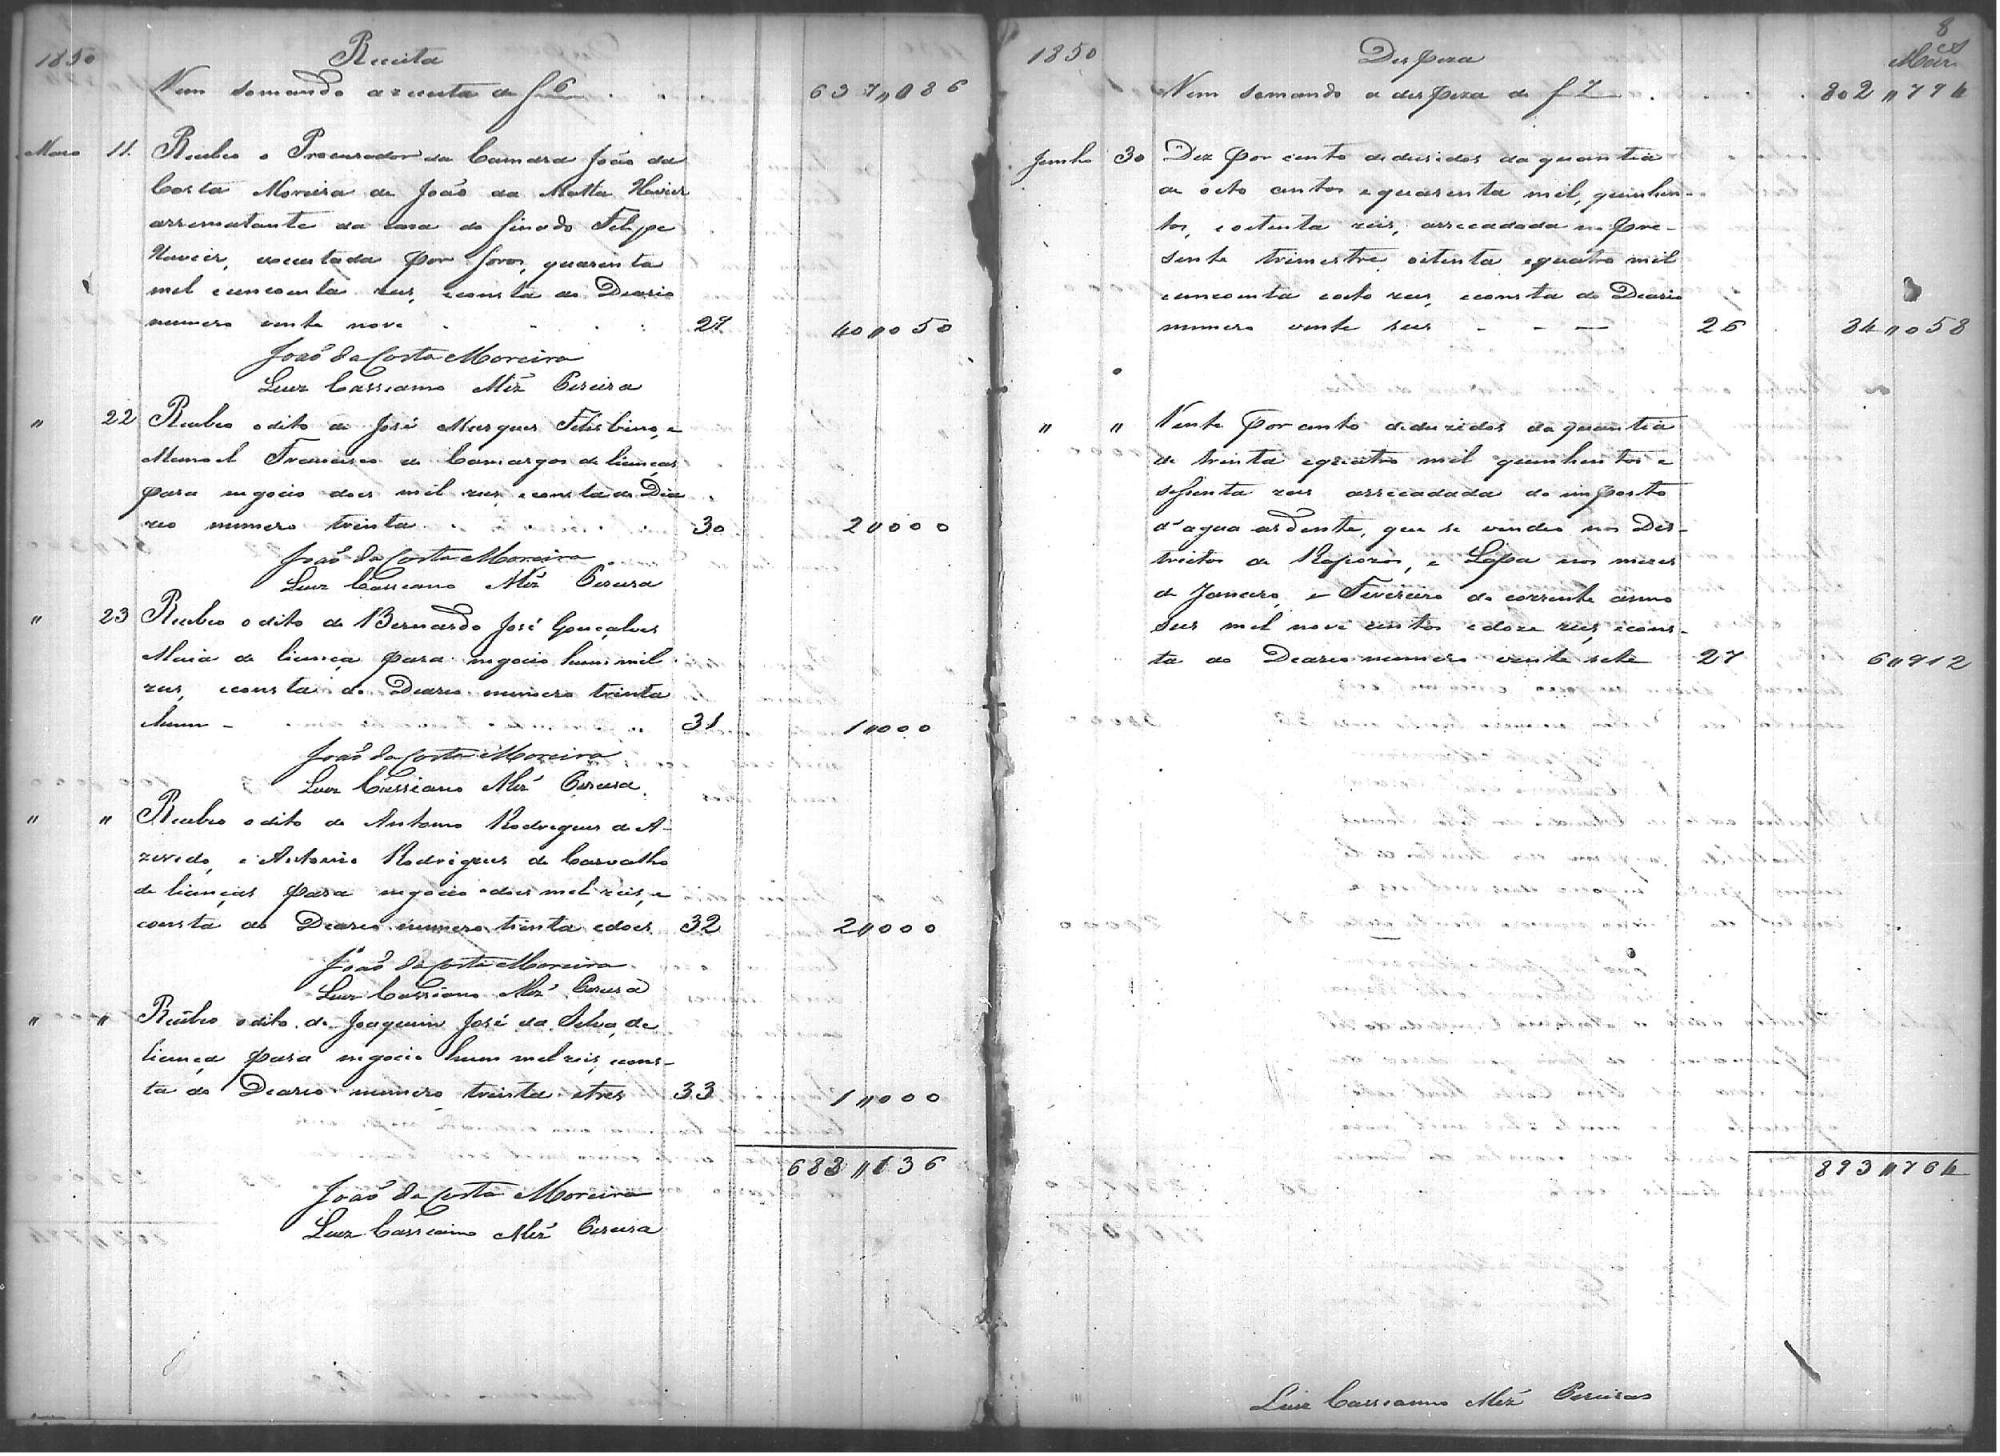 1850
Receita
Vem somando a receita de f 6 . . . 637,,086
Maio 11. Recebeo o Procurador da Camara João da
Costa Moreira de João da Matta Xavier
arrematante da casa do finado Felipe
Xavier, executada por foros, quarenta
mil e cincoenta reis, e consta do Diario
numero vinte nove . . . 29 40,,050
João da Costa Moreira
Luiz Cassiano Miz Pereira
" 22 Recebeo o dito de José Marques Felisbino, e
Manoel Francisco de Camargos de licenças
para negocio dois mil reis, e consta do Dia
rio numero trinta . . . 30 2,,000
João da Costa Moreira
Luiz Cassiano Miz Pereira
" 23 Recebeo o dito de Bernardo José Gonçalves
Maia de licença para negocio hum mil
reis, e consta do Diario numero trinta
hum - 31 1,,000
João da Costa Moreira
Luiz Cassiano Miz Pereira
" " Recebeo o dito de Antonio Rodrigues de A-
zevedo, e Antonio Rodrigues de Carvalho
de licenças para negocio dois mil reis, e
consta do Diario numero trinta e dois 32 2,,000
João da Costa Moreira
Luiz Cassiano Miz Pereira
" " Recebeo o dito de Joaquim José da Silva, de
licença para negocio hum mil reis, cons-
ta do Diario numero trinta e tres 33 1,,000
683,,136
João da Costa Moreira
Luiz Cassiano Miz Pereira
8
1850
Despeza
Vem somando a despeza de f 7 . . . 802,,794
Junho 30 Dez por cento dedusidos da quantia
de oito centos e quarenta mil, quinhen-
tos, e oitenta reis, arrecadada no pre-
sente trimestre oitenta e quatro mil
cincoenta e oito reis, e consta do Diario
numero vinte seis - - - 26 84,,058
" " Vinte por cento deduzidos da quantia
de trinta e quatro mil quinhentos e
sessenta reis arrecadada do imposto
d'agua ardente, que se vendeo nos Dis-
trictos de Raposos, e Lapa nos mezes
de Janeiro, e Fevereiro do corrente anno
seis mil nove centos e doze reis, e cons-
ta do Diario numero vinte sete 27 6,,912
893,,764
Luiz Cassiano Miz Pereira